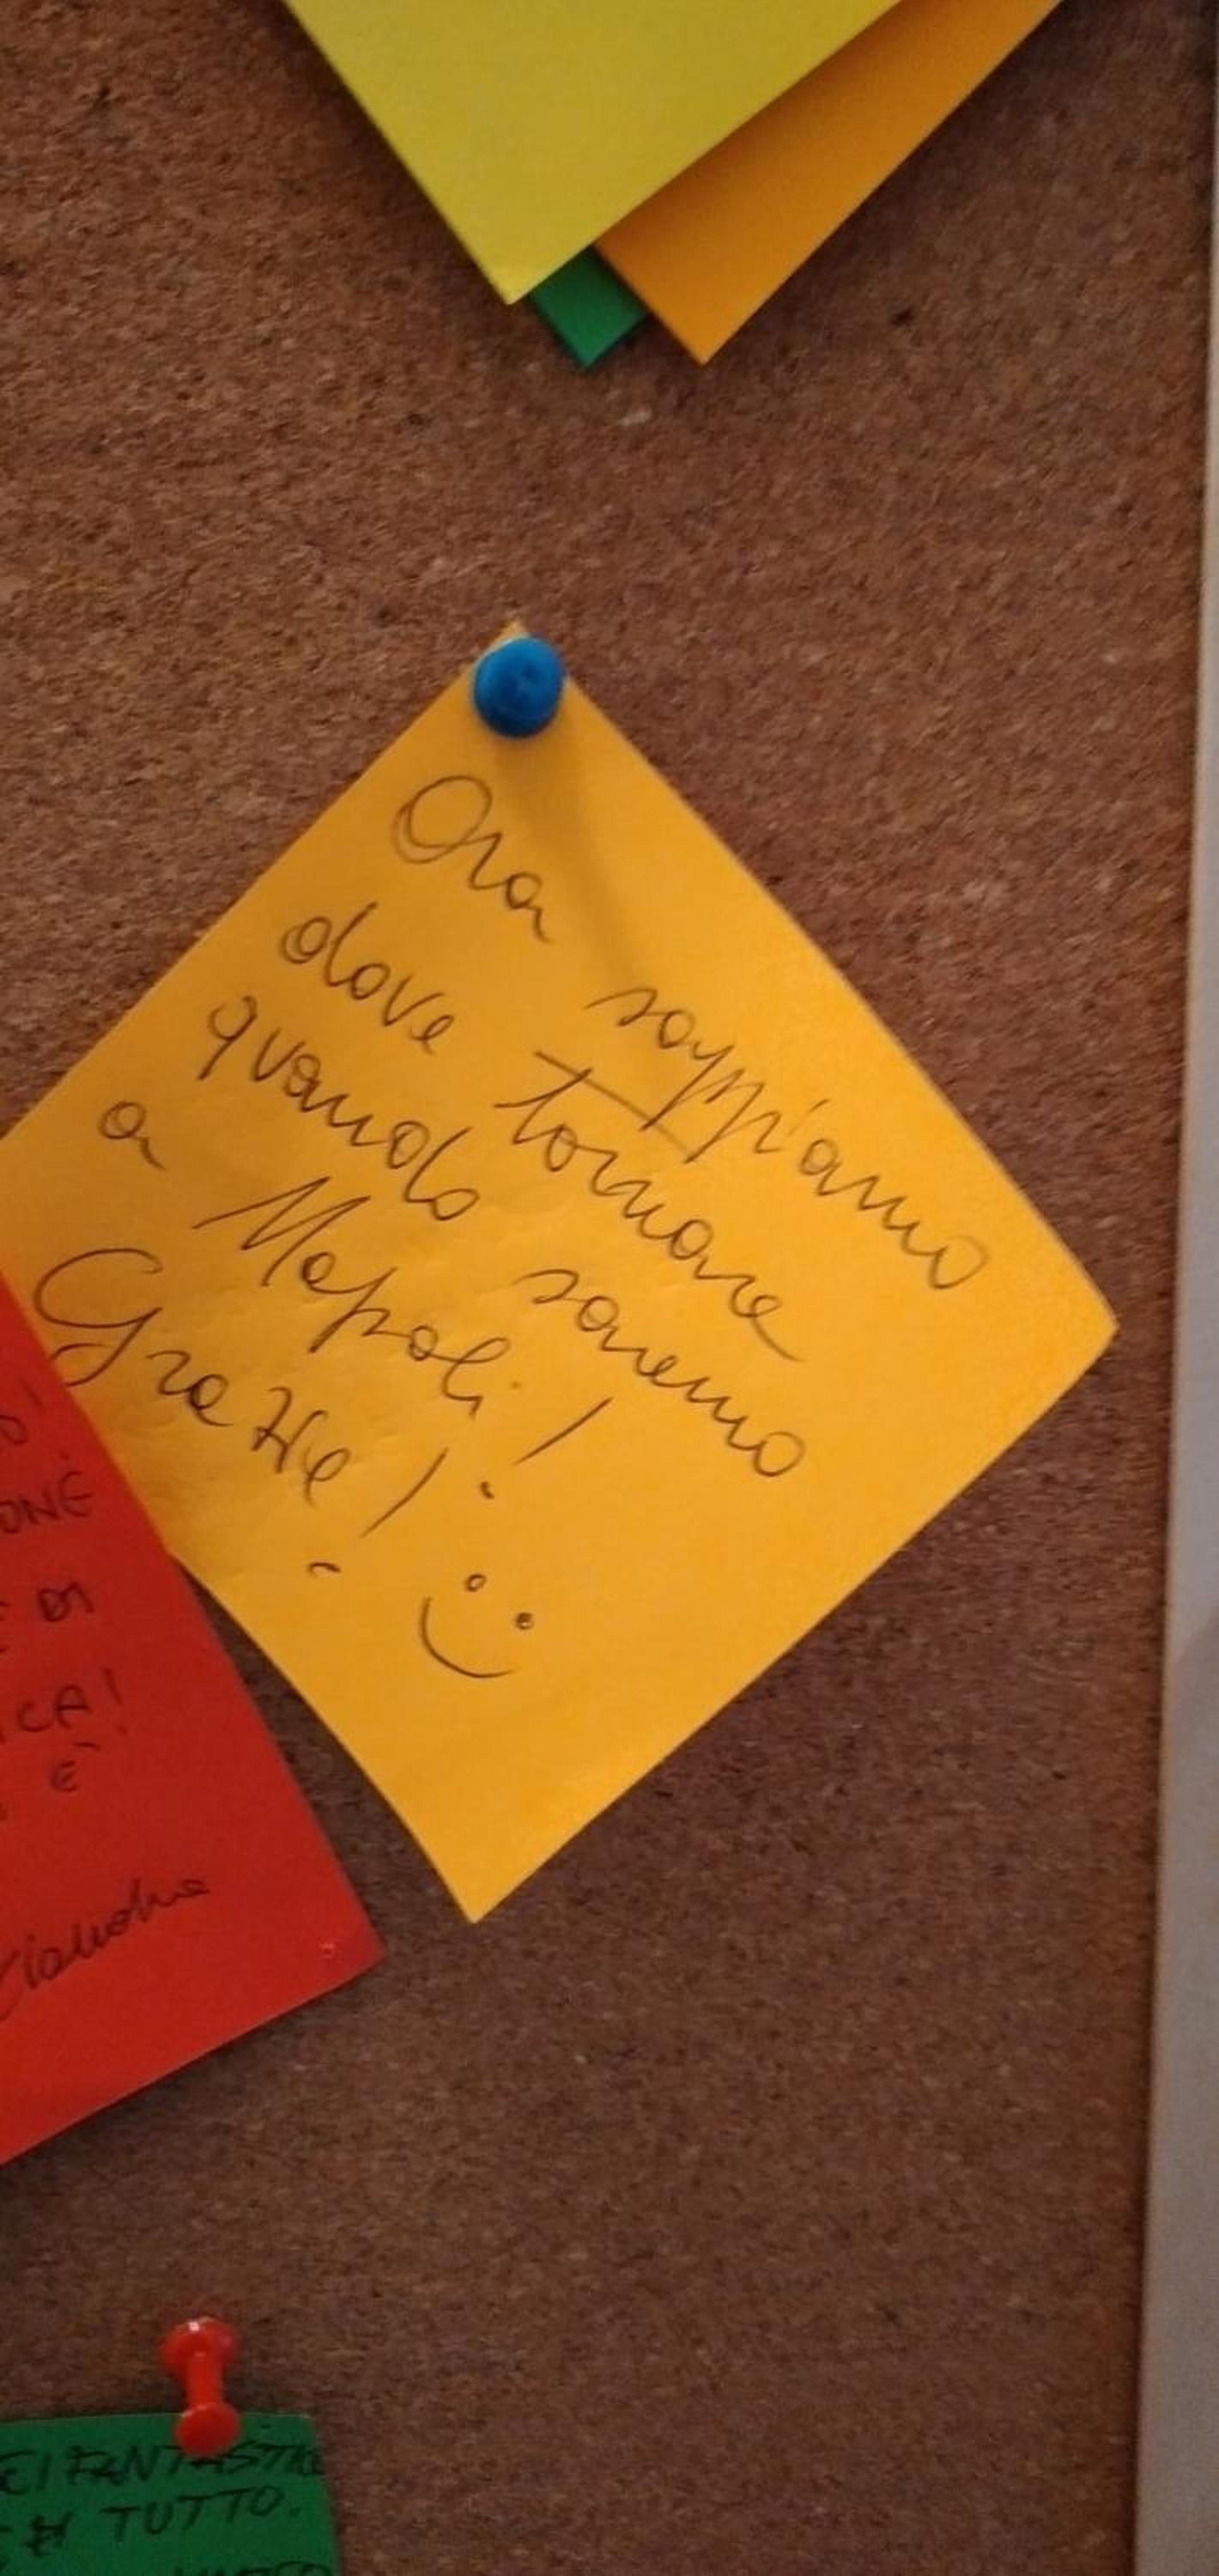 Ora sappiamo
dove tornare
quando saremo
a Napoli!
Grazie! :)
ONE
DI
ICA!
È
Claudia
EI FANTASTIC
TUTTO.